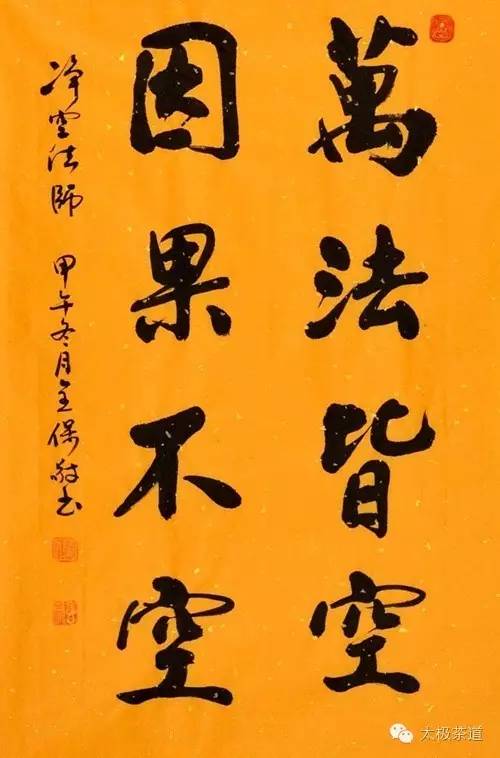 萬法皆空
因果不空
净空法師 甲午冬月全保敬书
太极茶道